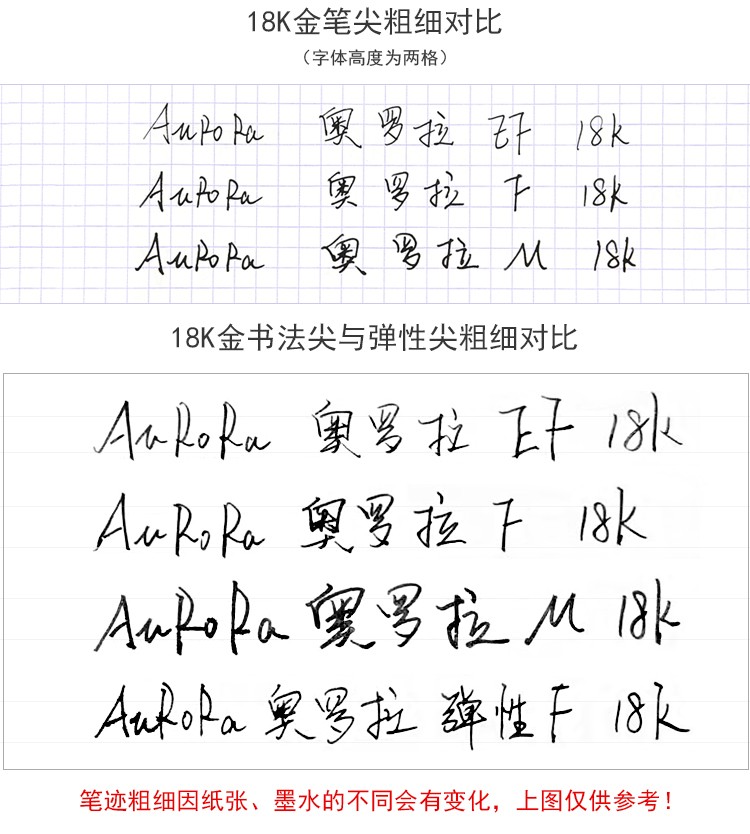 18K金笔尖粗细对比
（字体高度为两格）
AuRoRa 奥罗拉 EF 18K
AuRoRa 奥罗拉 F 18K
AuRoRa 奥罗拉 M 18K
18K金书法尖与弹性尖粗细对比
AuRoRa 奥罗拉 EF 18K
AuRoRa 奥罗拉 F 18K
AuRoRa 奥罗拉 M 18K
AuRoRa 奥罗拉 弹性F 18K
笔迹粗细因纸张、墨水的不同会有变化，上图仅供参考！